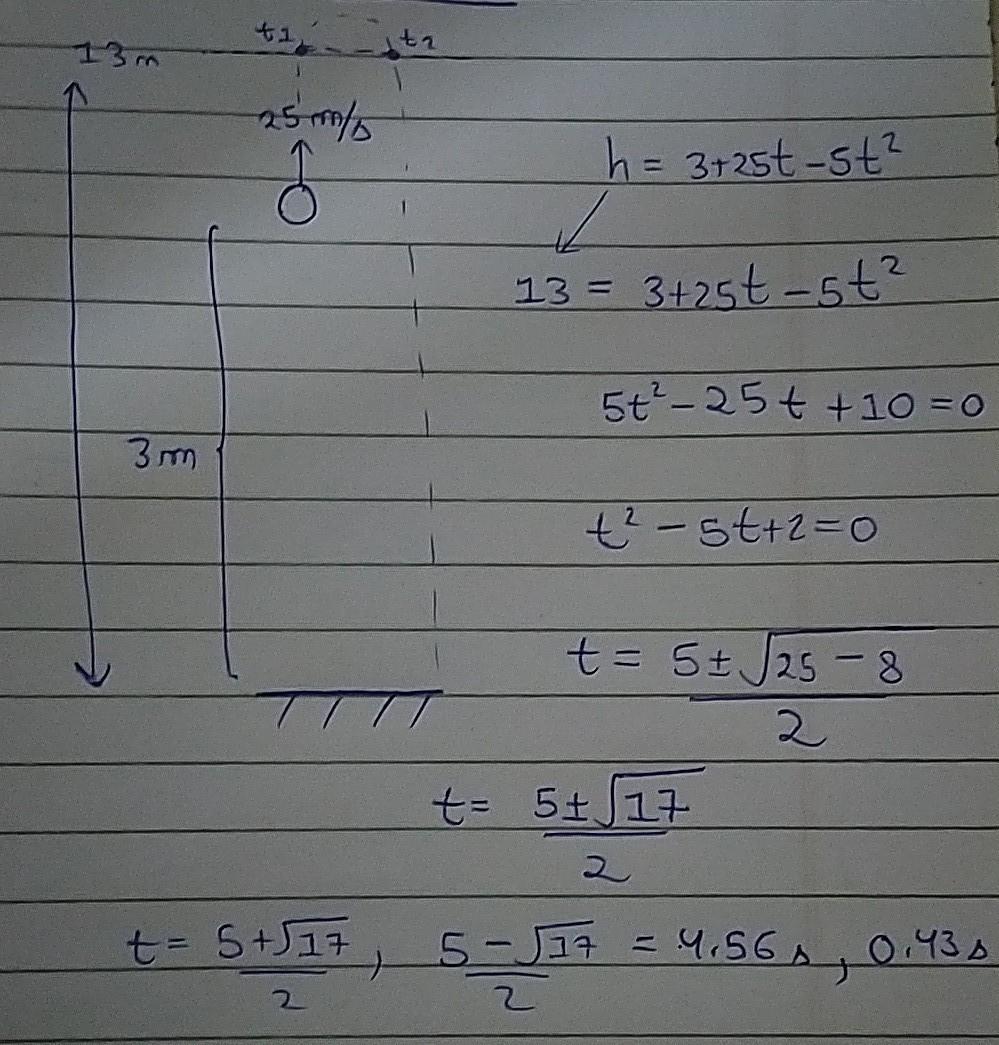 t1 t2
13m
25 m/s
h = 3+25t-5t²
13 = 3+25t-5t²
5t²-25t+10=0
3m
t²-5t+2=0
t = 5±√25-8
2
t= 5±√17
2
t= 5+√17, 5-√17 = 4.56s, 0.43s
2 2